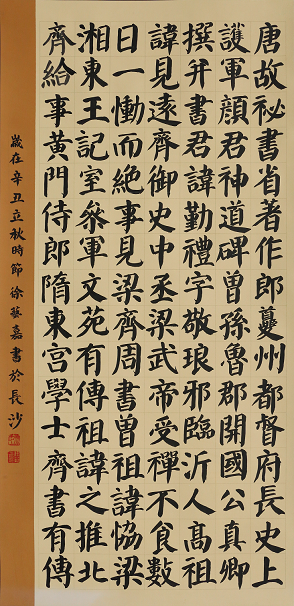 唐故祕書省著作郎夔州都督府長史上
護軍顔君神道碑曾孫魯郡開國公真卿
撰并書君諱勤禮字敬琅邪臨沂人高祖
諱見遠齊御史中丞梁武帝受禪不食數
日一慟而絶事見梁齊周書曾祖諱協梁
湘東王記室參軍文苑有傳祖諱之推北
齊給事黄門侍郎隋東宫學士齊書有傳
歲在辛丑立秋時節徐藝嘉書於長沙